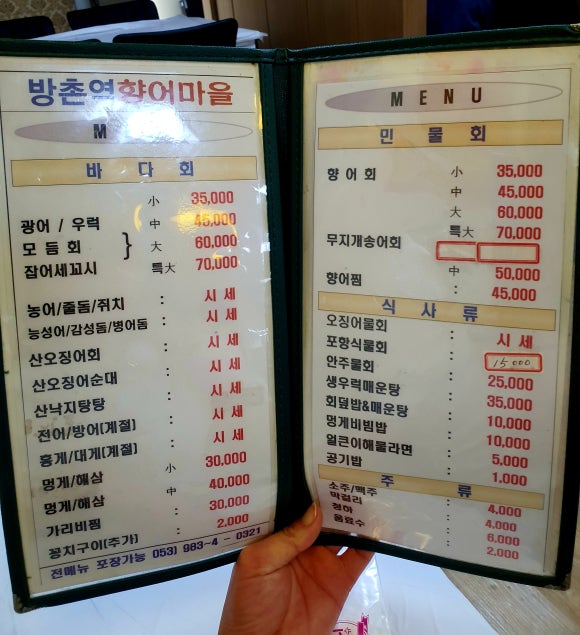 방촌역향어마을
M
바 다 회
小 35,000
광어 / 우럭 中 45,000
모 듬 회 } 大 60,000
잡어세꼬시 특大 70,000
농어/줄돔/쥐치 : 시 세
능성어/감성돔/병어돔 : 시 세
산오징어회 : 시 세
산오징어순대 : 시 세
산낙지탕탕 : 시 세
전어/방어(계절) : 시 세
홍게/대게(계절) : 시 세
멍게/해삼 小 30,000
멍게/해삼 中 40,000
가리비찜 : 30,000
꽁치구이(추가) : 2,000
전메뉴 포장가능 053) 983-4 - 0321
MENU
민 물 회
향 어 회 小 35,000
中 45,000
大 60,000
특大 70,000
무지개송어회
中 50,000
향어찜 : 45,000
식 사 류
오징어물회 : 시 세
포항식물회 : 15000
안주물회 : 25,000
생우럭매운탕 : 35,000
회덮밥&매운탕 : 10,000
멍게비빔밥 : 10,000
얼큰이해물라면 : 5,000
공기밥 : 1,000
주 류
소주/맥주 : 4,000
막걸리 : 4,000
청하 : 6,000
음료수 : 2,000